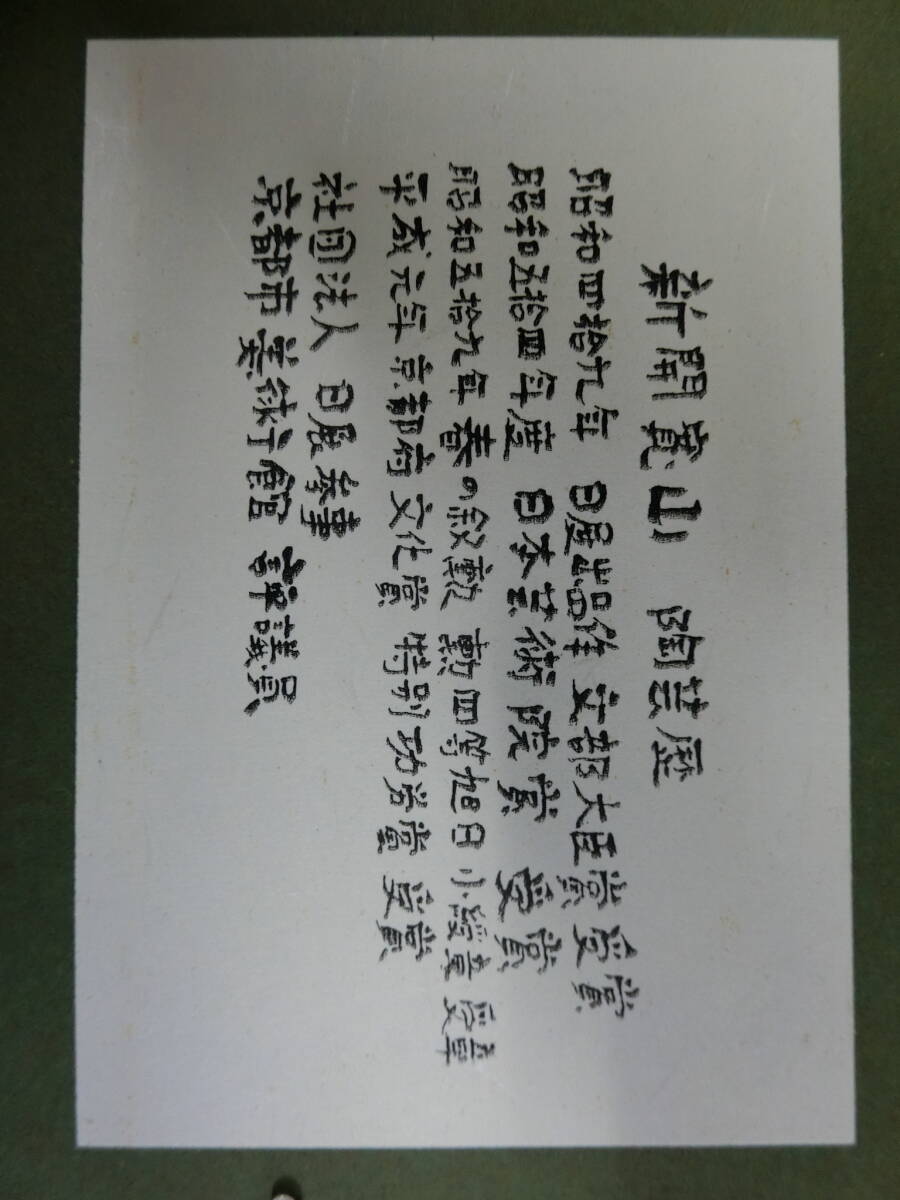 新開寛山 陶芸歴
昭和四拾九年 日展出品作 文部大臣賞 受賞
昭和五拾四年度 日本芸術院賞 受賞
昭和五拾九年 春の叙勳 勲四等旭日小綬章 受章
平成元年 京都府文化賞 特別功労賞 受賞
社団法人 日展参事
京都市美術館 評議員